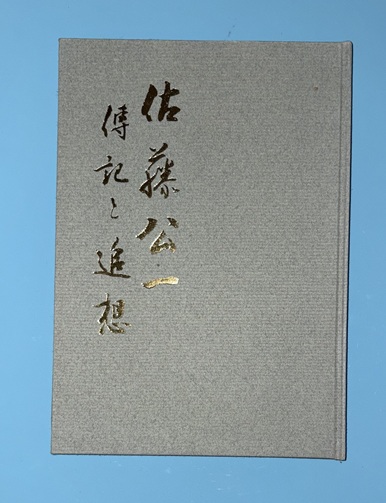 佐藤公一
傳記と追想